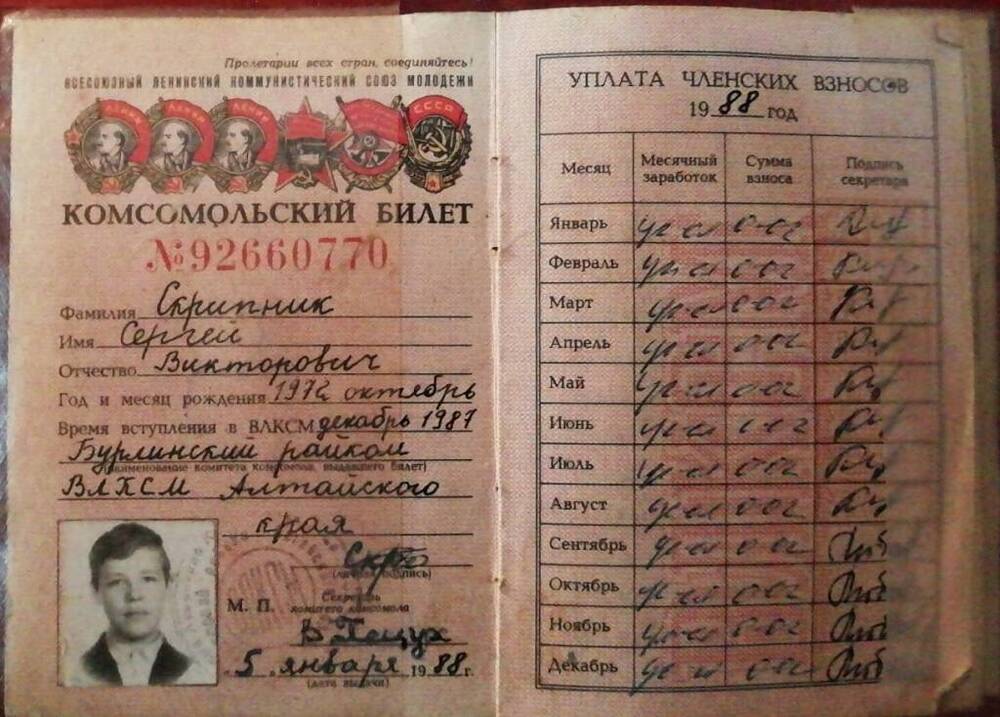 Пролетарии всех стран, соединяйтесь!
ВСЕСОЮЗНЫЙ ЛЕНИНСКИЙ КОММУНИСТИЧЕСКИЙ СОЮЗ МОЛОДЕЖИ
ЛЕНИН ЛЕНИН ЛЕНИН СССР
КОМСОМОЛЬСКИЙ БИЛЕТ
№92660770
Фамилия Скрипник
Имя Сергей
Отчество Викторович
Год и месяц рождения 1972 октябрь
Время вступления в ВЛКСМ декабрь 1987
Бурлинский райком
(наименование комитета комсомола, выдавшего билет)
ВЛКСМ Алтайского
края
(личная подпись)
М. П. Секретарь
комитета комсомола
5 января 1988 г.
(дата выдачи)
УПЛАТА ЧЛЕНСКИХ ВЗНОСОВ
1988 год
Месяц Месячный заработок Сумма взноса Подпись секретаря
Январь уч-ся 0-02
Февраль уч-ся 0-02
Март уч-ся 0-02
Апрель уч-ся 0-02
Май уч-ся 0-02
Июнь уч-ся 0-02
Июль уч-ся 0-02
Август уч-ся 0-02
Сентябрь уч-ся 0-02
Октябрь уч-ся 0-02
Ноябрь уч-ся 0-02
Декабрь уч-ся 0-02